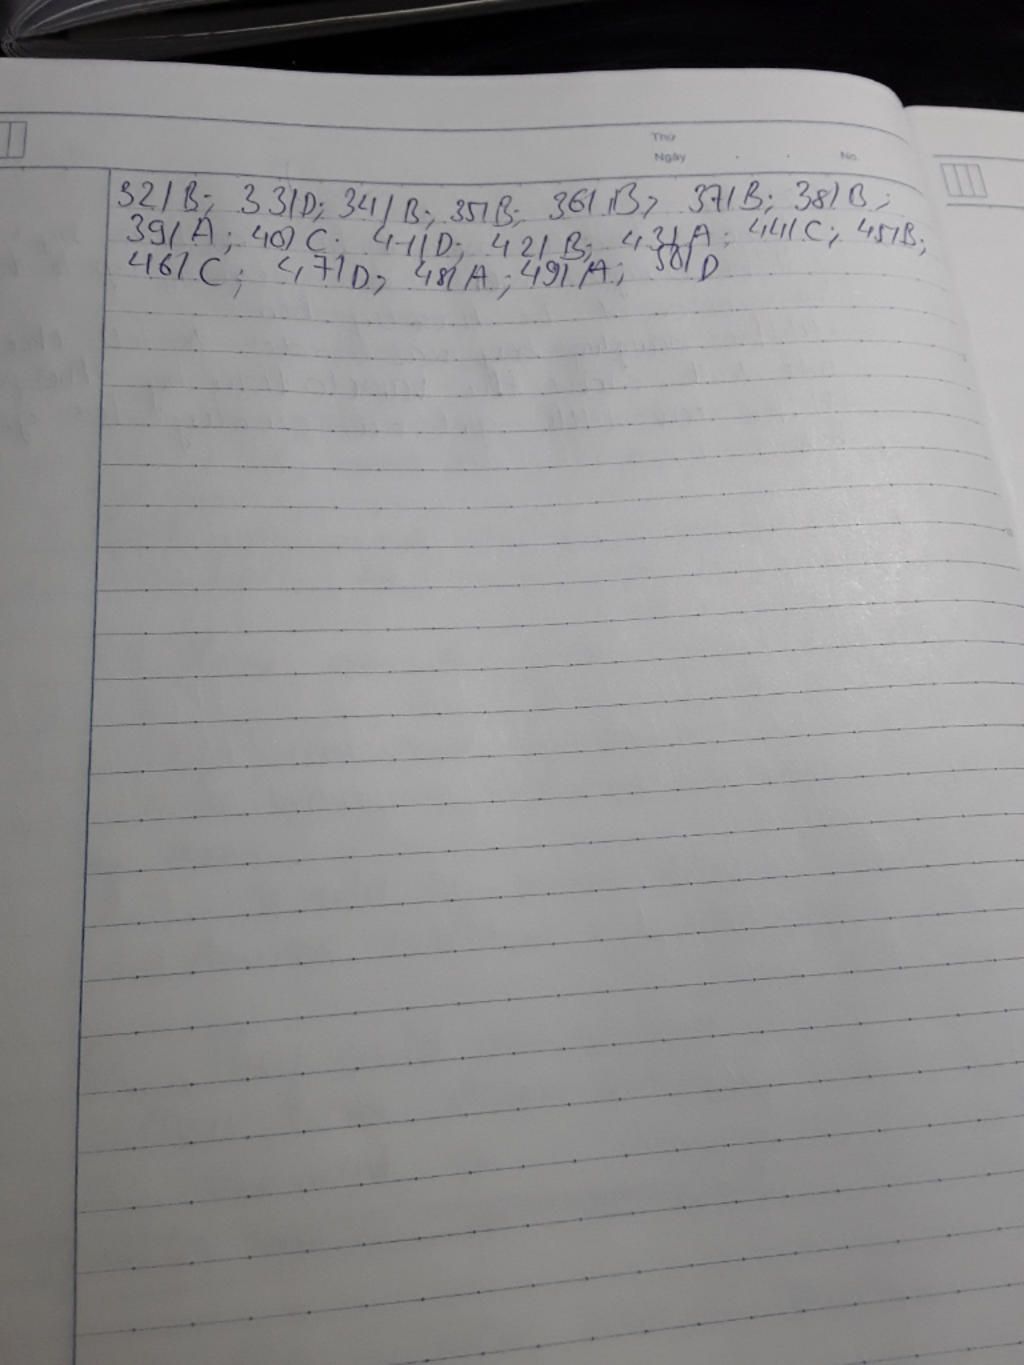 Thứ
Ngày . . No.
32/B; 33/D; 34/B; 35/B; 36/B; 37/B; 38/B;
39/A; 40/C. 41/D; 42/B; 43/A; 44/C; 45/B;
46/C; 47/D; 48/A; 49/A; 50/D